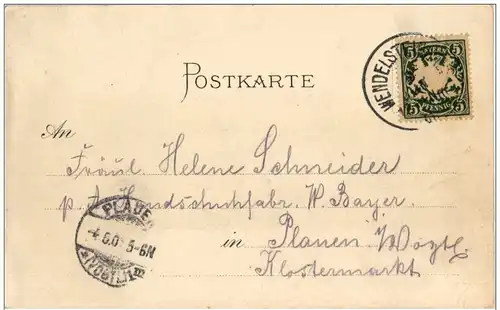 POSTKARTE
WENDELST
5 BAYERN 5
5 PFENNIG 5
An
Fräul. Helene Schneider
p. A. Handschuhfabr. W. Bayer.
in Plauen i/Vogtl.
Klostermarkt
PLAUE
5-6N